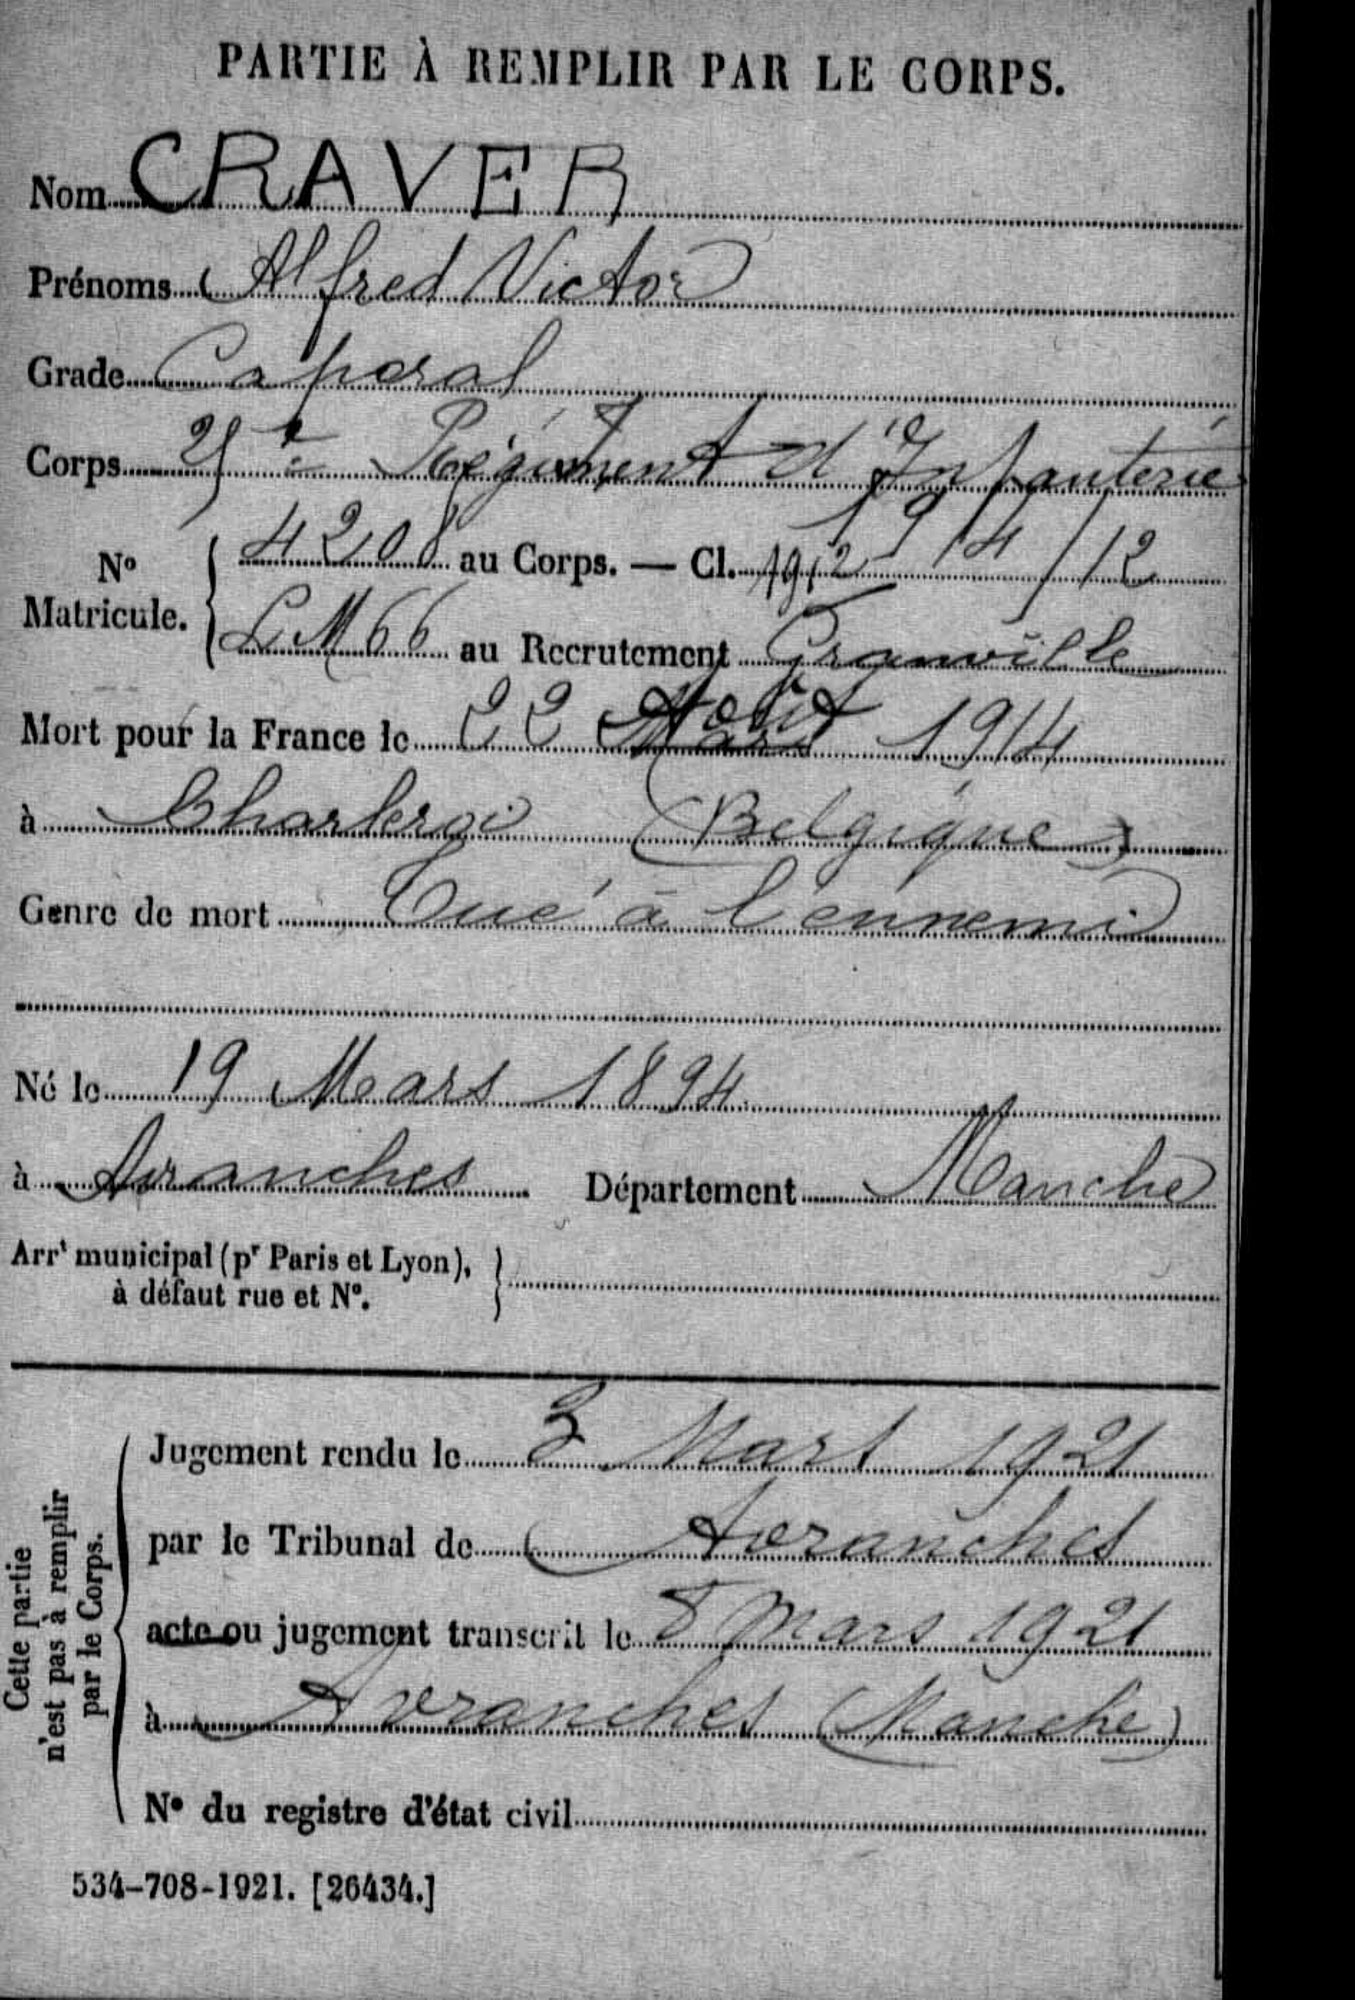 PARTIE À REMPLIR PAR LE CORPS.
Nom CRAVER
Prénoms Alfred Victor
Grade Caporal
Corps 25e Régiment d'Infanterie
No Matricule. 4208 au Corps. — Cl. 1912 1914/12
LM66 au Recrutement Granville
Mort pour la France le 22 Août 1914
à Charleroi (Belgique)
Genre de mort Tué à l'ennemi
Né le 19 Mars 1894
à Avranches Département Manche
Arrt municipal (pr Paris et Lyon),
à défaut rue et No.
Cette partie
n'est pas à remplir
par le Corps.
Jugement rendu le 3 Mars 1921
par le Tribunal de Avranches
acte ou jugement transcrit le 8 mars 1921
à Avranches (Manche)
No du registre d'état civil
534-708-1921. [26434.]